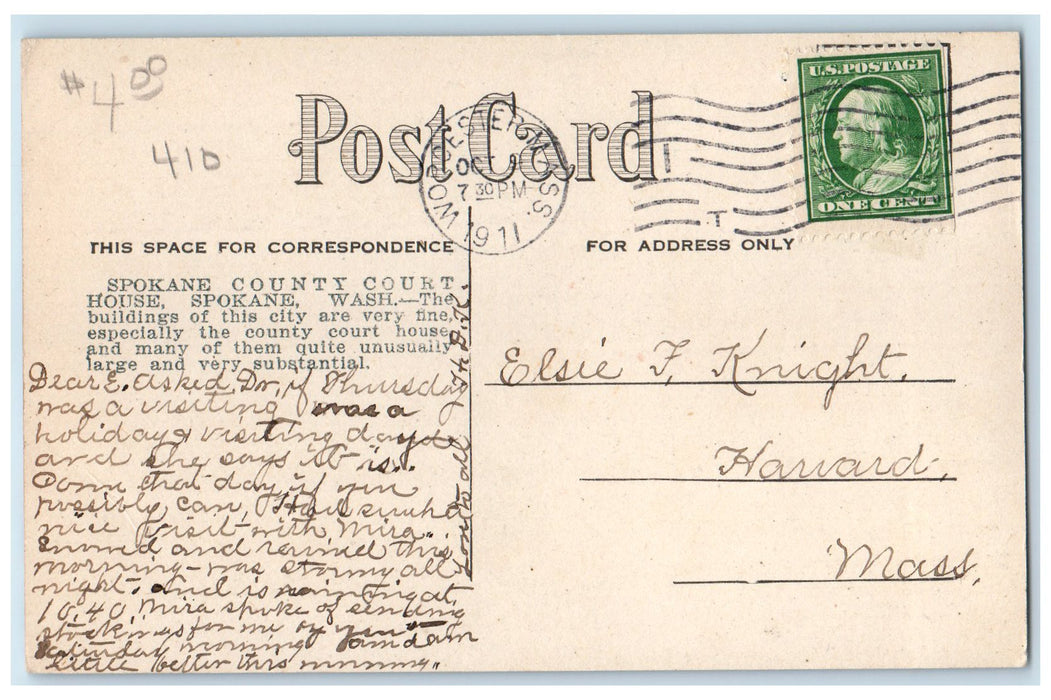 #4.00
410
Post Card
WORCESTER, MASS.
OCT 9
7 30 PM
1911
1
T
U.S. POSTAGE
ONE CENT
THIS SPACE FOR CORRESPONDENCE
FOR ADDRESS ONLY
SPOKANE COUNTY COURT
HOUSE, SPOKANE, WASH.—The
buildings of this city are very fine,
especially the county court house,
and many of them quite unusually
large and very substantial.
Dear E. asked Dr, if Thursday
was a visiting was a
holiday & visiting day
and she says it is.
Come that day, if you
possibly can, Had such a
nice visit with Mira.
Snowed and rained this
morning - was stormy all
night. And is raining at
10.40. Mira spoke of sending
stockings for me by you
Saturday morning. Am
little better this morning.
Love to all
Elsie F. Knight.
Harvard,
Mass.